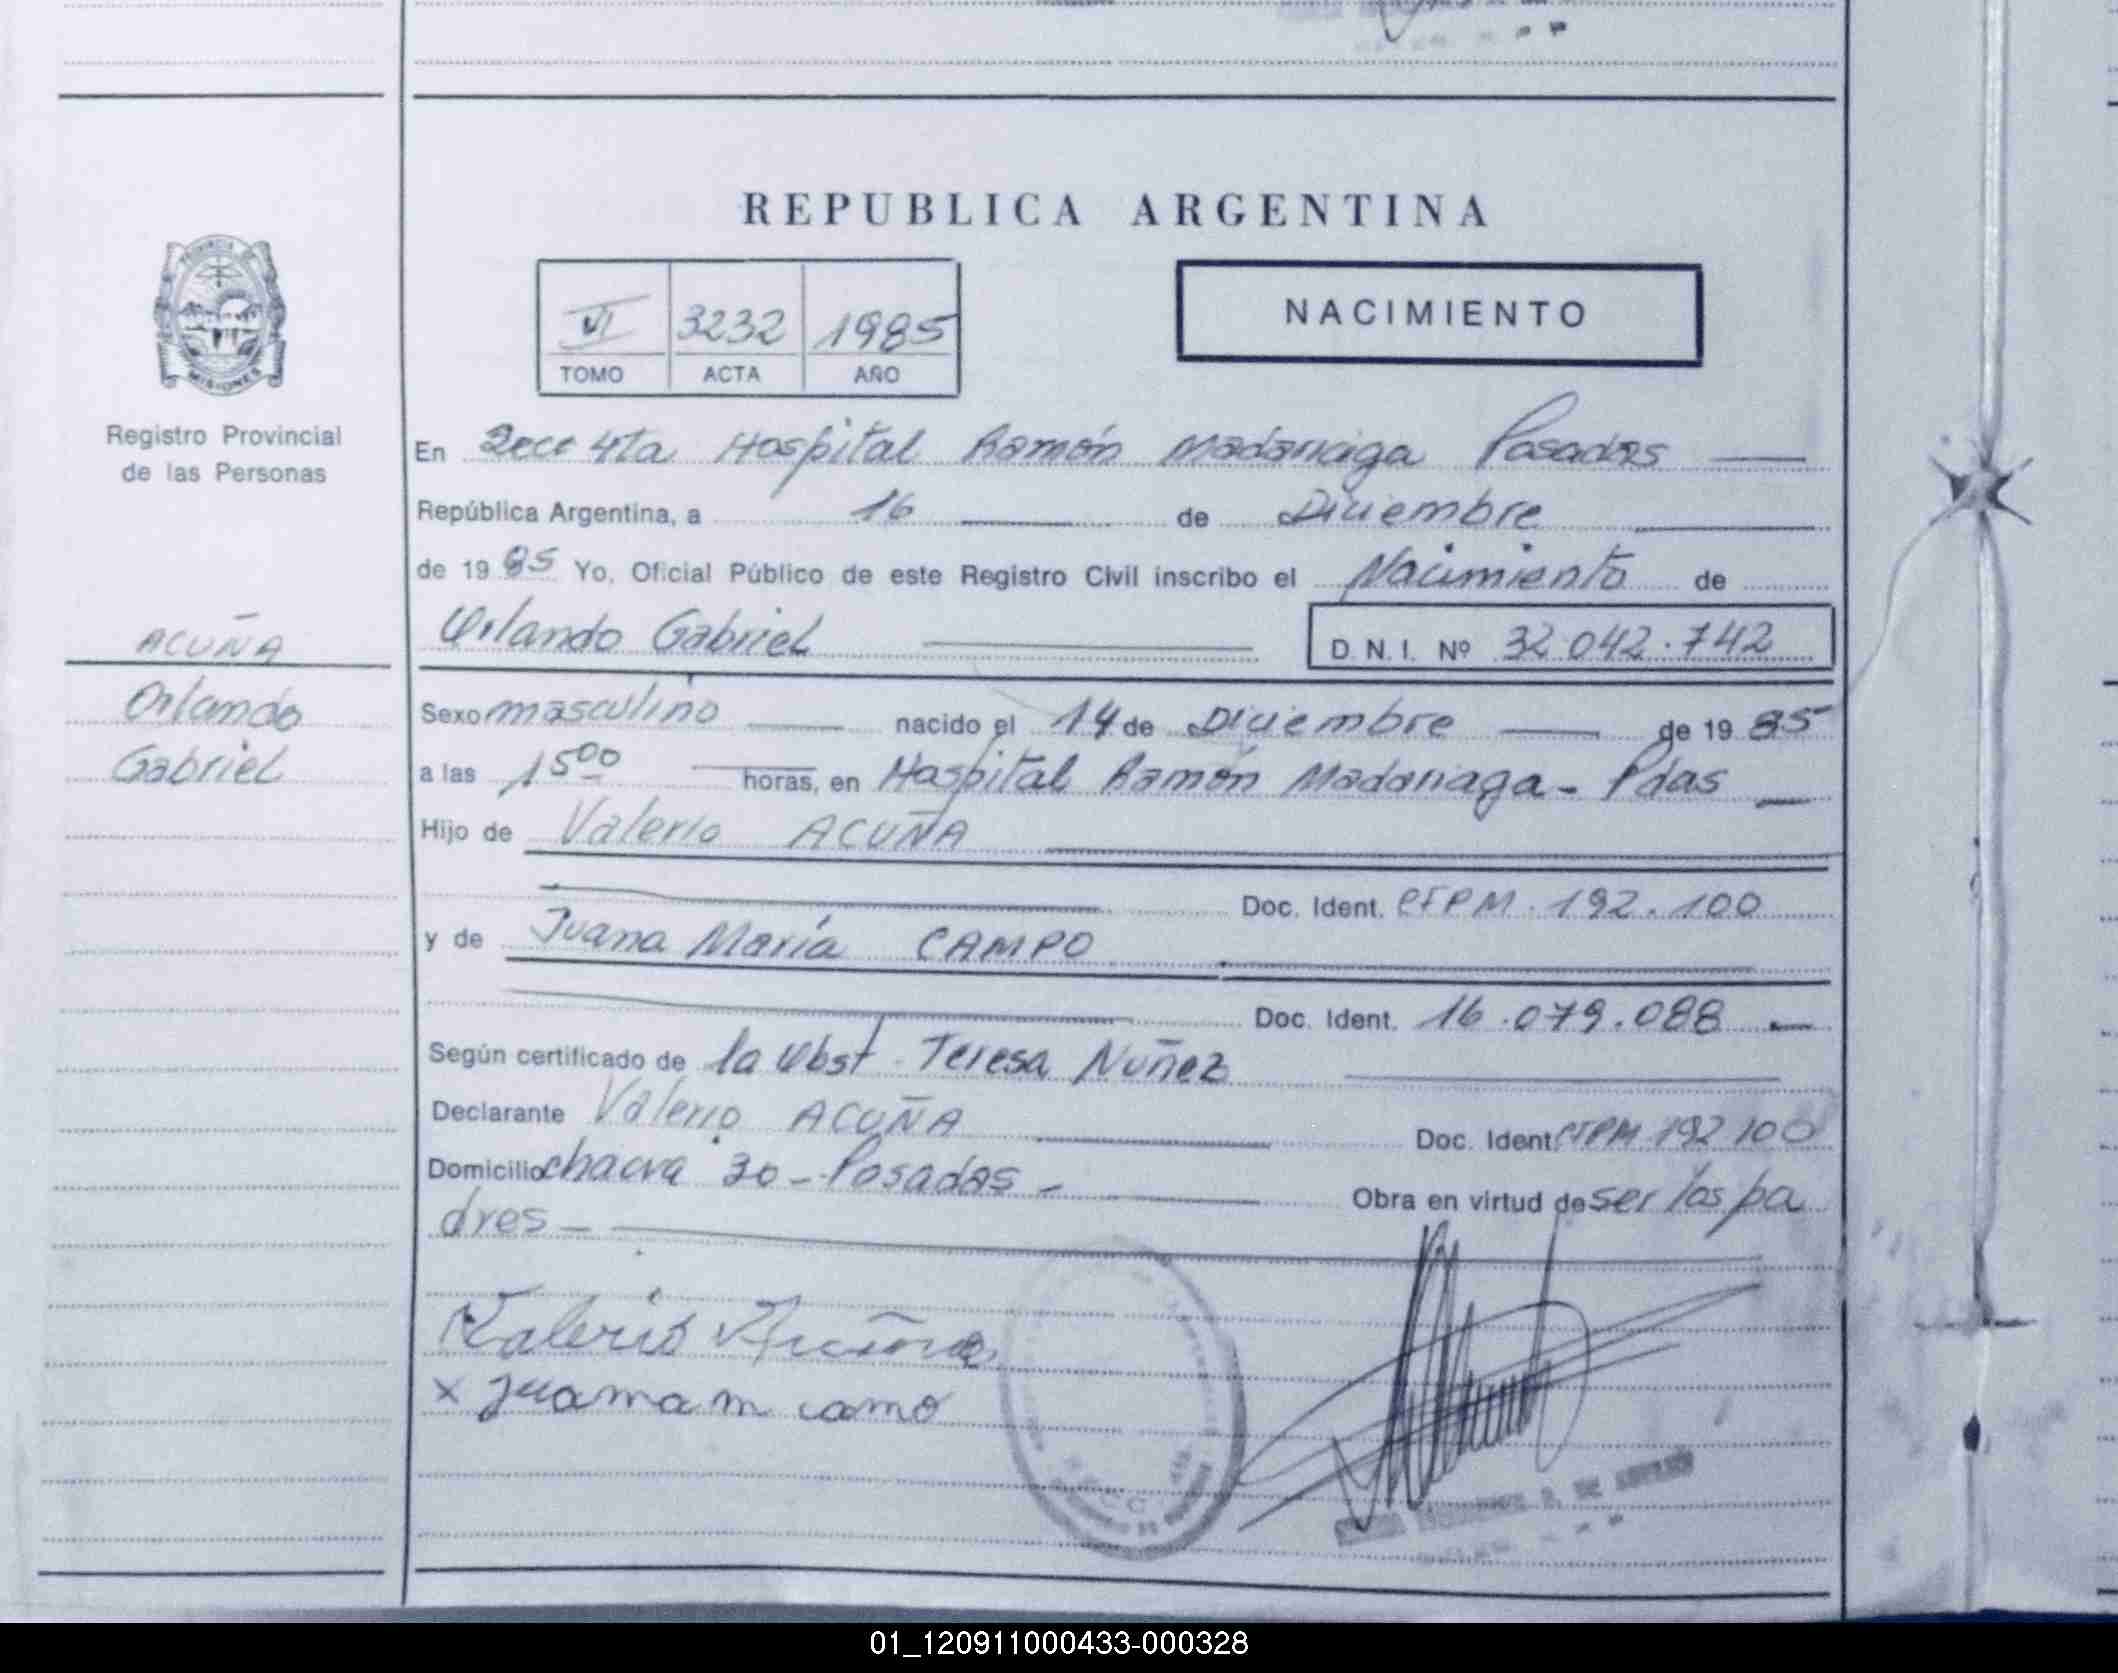 REPUBLICA ARGENTINA
VI 3232 1985
TOMO ACTA AÑO
NACIMIENTO
PROVINCIA DE
MISIONES
Registro Provincial
de las Personas
ACUÑA
Orlando
Gabriel
En Secc 4ta Hospital Ramón Madariaga Posadas
República Argentina, a 16 de Diciembre
de 1985 Yo, Oficial Público de este Registro Civil inscribo el Nacimiento de
Orlando Gabriel D.N.I. Nº 32.042.742
Sexo masculino nacido el 14 de Diciembre de 1985
a las 15 00 horas, en Hospital Ramón Madariaga - Pdas
Hijo de Valerio ACUÑA
Doc. Ident. CIPM. 192.100
y de Juana María CAMPO
Doc. Ident. 16.079.088
Según certificado de la Obst. Teresa Nuñez
Declarante Valerio ACUÑA Doc. Ident. CIPM 192100
Domicilio chacra 30 - Posadas - Obra en virtud de ser los pa
dres -
Valerio Acuña
x Juamam camo
01_120911000433-000328